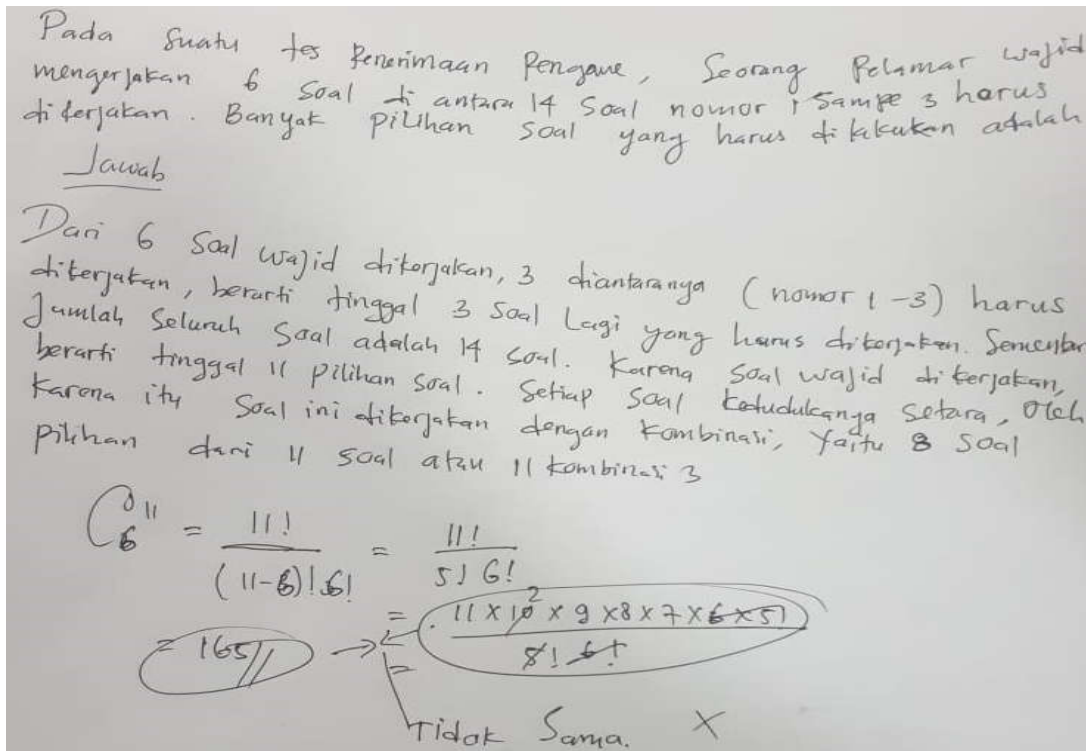 Pada suatu tes Penerimaan Pengawe, Seorang Pelamar wajid
mengerjakan 6 soal di antara 14 Soal nomor 1 sampe 3 harus
dikerjakan. Banyak pilihan soal yang harus dilakukan adalah
Jawab
Dari 6 Soal wajid dikerjakan, 3 diantaranya (nomor 1-3) harus
dikerjakan, berarti tinggal 3 soal Lagi yang harus dikerjakan. Sementar
Jumlah Seluruh Soal adalah 14 soal. Karena soal wajid dikerjakan,
berarti tinggal 11 pilihan soal. Setiap soal kedudukanya setara, Oleh
karena itu Soal ini dikerjakan dengan kombinasi, Yaitu 8 soal
pilihan dari 11 soal atau 11 kombinasi 3
C 11 6 = 11! / (11-6)! 6! = 11! / 5! 6!
= 11 x 10 2 x 9 x 8 x 7 x 6 x 5! / 8! 6!
= 165 // → =
Tidak Sama. X